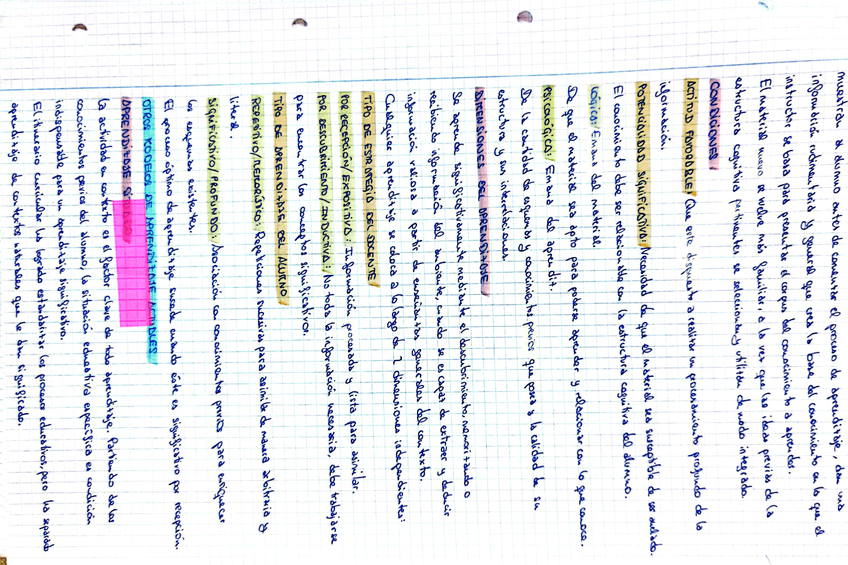 muestran al alumno antes de comenzar el proceso de aprendizaje, dan una
información rudimentaria y general que crea la base del conocimiento en la que el
instructor se basa para presentar el corpus del conocimiento a aprender.
El material nuevo se vuelve más familiar a la vez que las ideas previas de la
estructura cognitiva pertinentes se seleccionan y utilizan de modo integrado.
CONDICIONES:
ACTITUD FAVORABLE/ Que esté dispuesto a realizar un procesamiento profundo de la
información.
POTENCIALIDAD SIGNIFICATIVA/ Necesidad de que el material sea susceptible de ser anclado.
El conocimiento debe ser relacionable con la estructura cognitiva del alumno.
LÓGICA: Emana del material.
De que el material sea apto para poderse aprender y relacionar con lo que conoce.
PSICOLÓGICA/ Emana del aprendiz.
De la cantidad de esquemas y conocimientos previos que posea a la calidad de su
estructura y sus interrelaciones.
DIMENSIONES DEL APRENDIZAJE:
Se aprende significativamente mediante el descubrimiento, memorizando o
recibiendo información del ambiente, cuando se es capaz de extraer y deducir
información valiosa a partir de enseñanzas generales del contexto.
Cualquier aprendizaje se coloca a lo largo de 2 dimensiones independientes:
TIPO DE ESTRATEGIA DEL DOCENTE/
POR RECEPCIÓN/EXPOSITIVA: Información procesada y lista para asimilar.
POR DESCUBRIMIENTO/INDUCTIVA: No toda la información necesaria, debe trabajarse
para encontrar los conceptos significativos.
TIPO DE APRENDIZAJE DEL ALUMNO/
REPETITIVO/MEMORÍSTICO: Repeticiones sucesivas para asimilar de manera arbitraria y
literal.
SIGNIFICATIVO/PROFUNDO: Asociación con conocimientos previos para enriquecer
los esquemas existentes.
El proceso óptimo de aprendizaje sucede cuando éste es significativo por recepción.
OTROS MODELOS DE APRENDIZAJE ACTUALES
APRENDIZAJE SITUADO/
La actividad en contexto es el factor clave de todo aprendizaje. Partiendo de los
conocimientos previos del alumno, la situación educativa específica es condición
indispensable para un aprendizaje significativo.
El itinerario curricular ha logrado estandarizar los procesos educativos, pero ha separado
aprendizaje de contextos naturales que le dan significado.